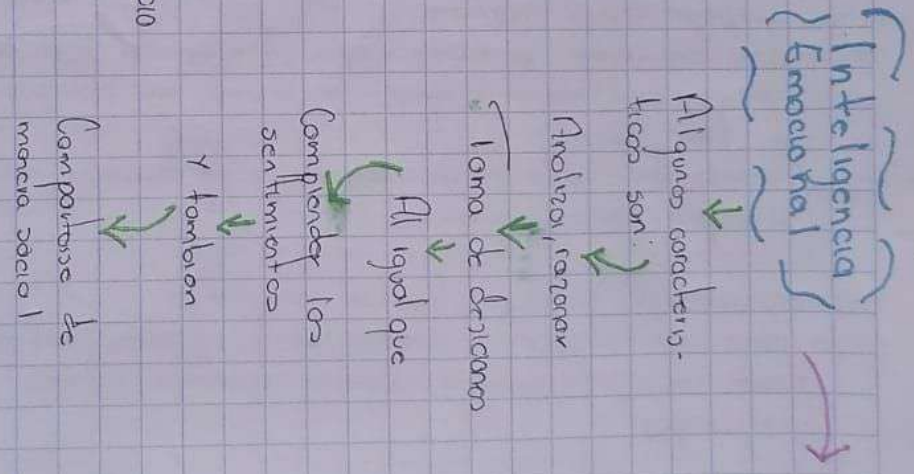 Inteligencia
Emocional
Algunas caracterís-
ticas son:
Analizar, razonar
Toma de desiciones
Al igual que
Complender los
sentimientos
Y tambien
Comportarse de
manera social